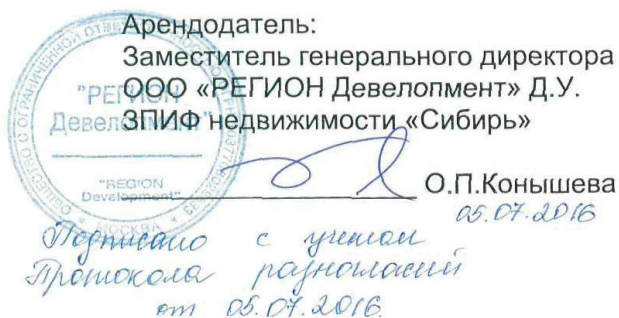 Арендодатель:
Заместитель генерального директора
ООО «РЕГИОН Девелопмент» Д.У.
ЗПИФ недвижимости «Сибирь»
О.П.Конышева
05.07.2016
Подписано с учетом
Протокола разногласий
от 05.07.2016.
ОБЩЕСТВО С ОГРАНИЧЕННОЙ
"РЕГИОН
Девелопмент"
"REGION
Development"
МОСКВА